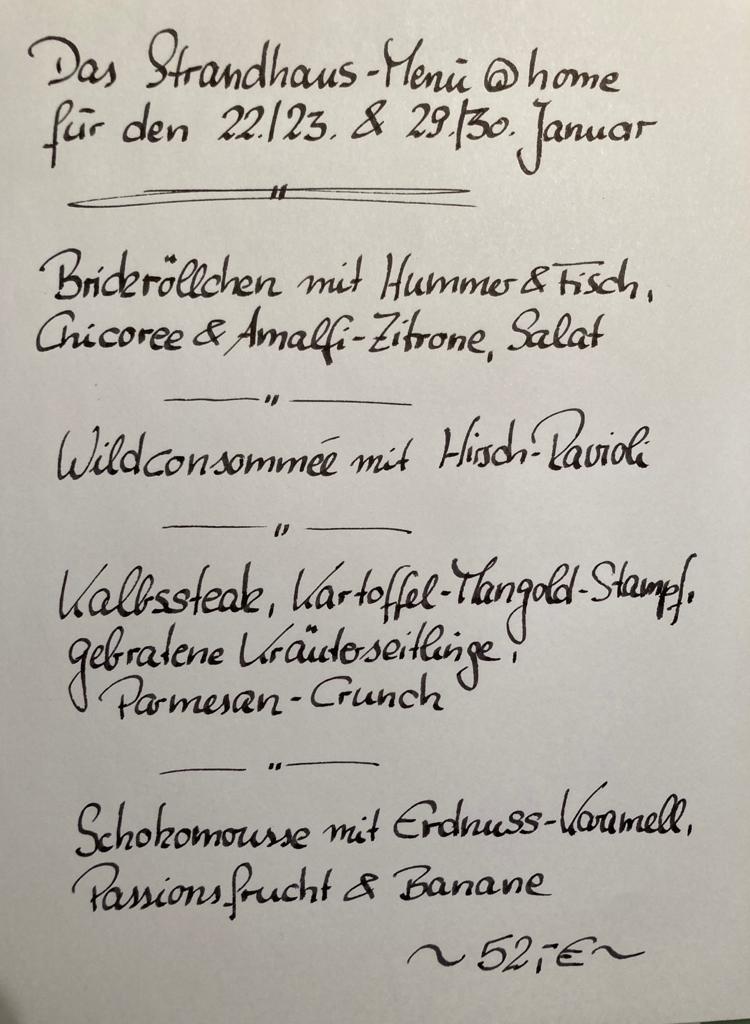 Das Strandhaus-Menü @home
für den 22./23. & 29./30. Januar
Brickröllchen mit Hummer & Fisch,
Chicoree & Amalfi-Zitrone, Salat
Wildconsommée mit Hirsch-Ravioli
Kalbssteak, Kartoffel-Mangold-Stampf,
gebratene Kräuterseitlinge,
Parmesan-Crunch
Schokomousse mit Erdnuss-Karamell,
Passionsfrucht & Banane
~ 52,-€ ~